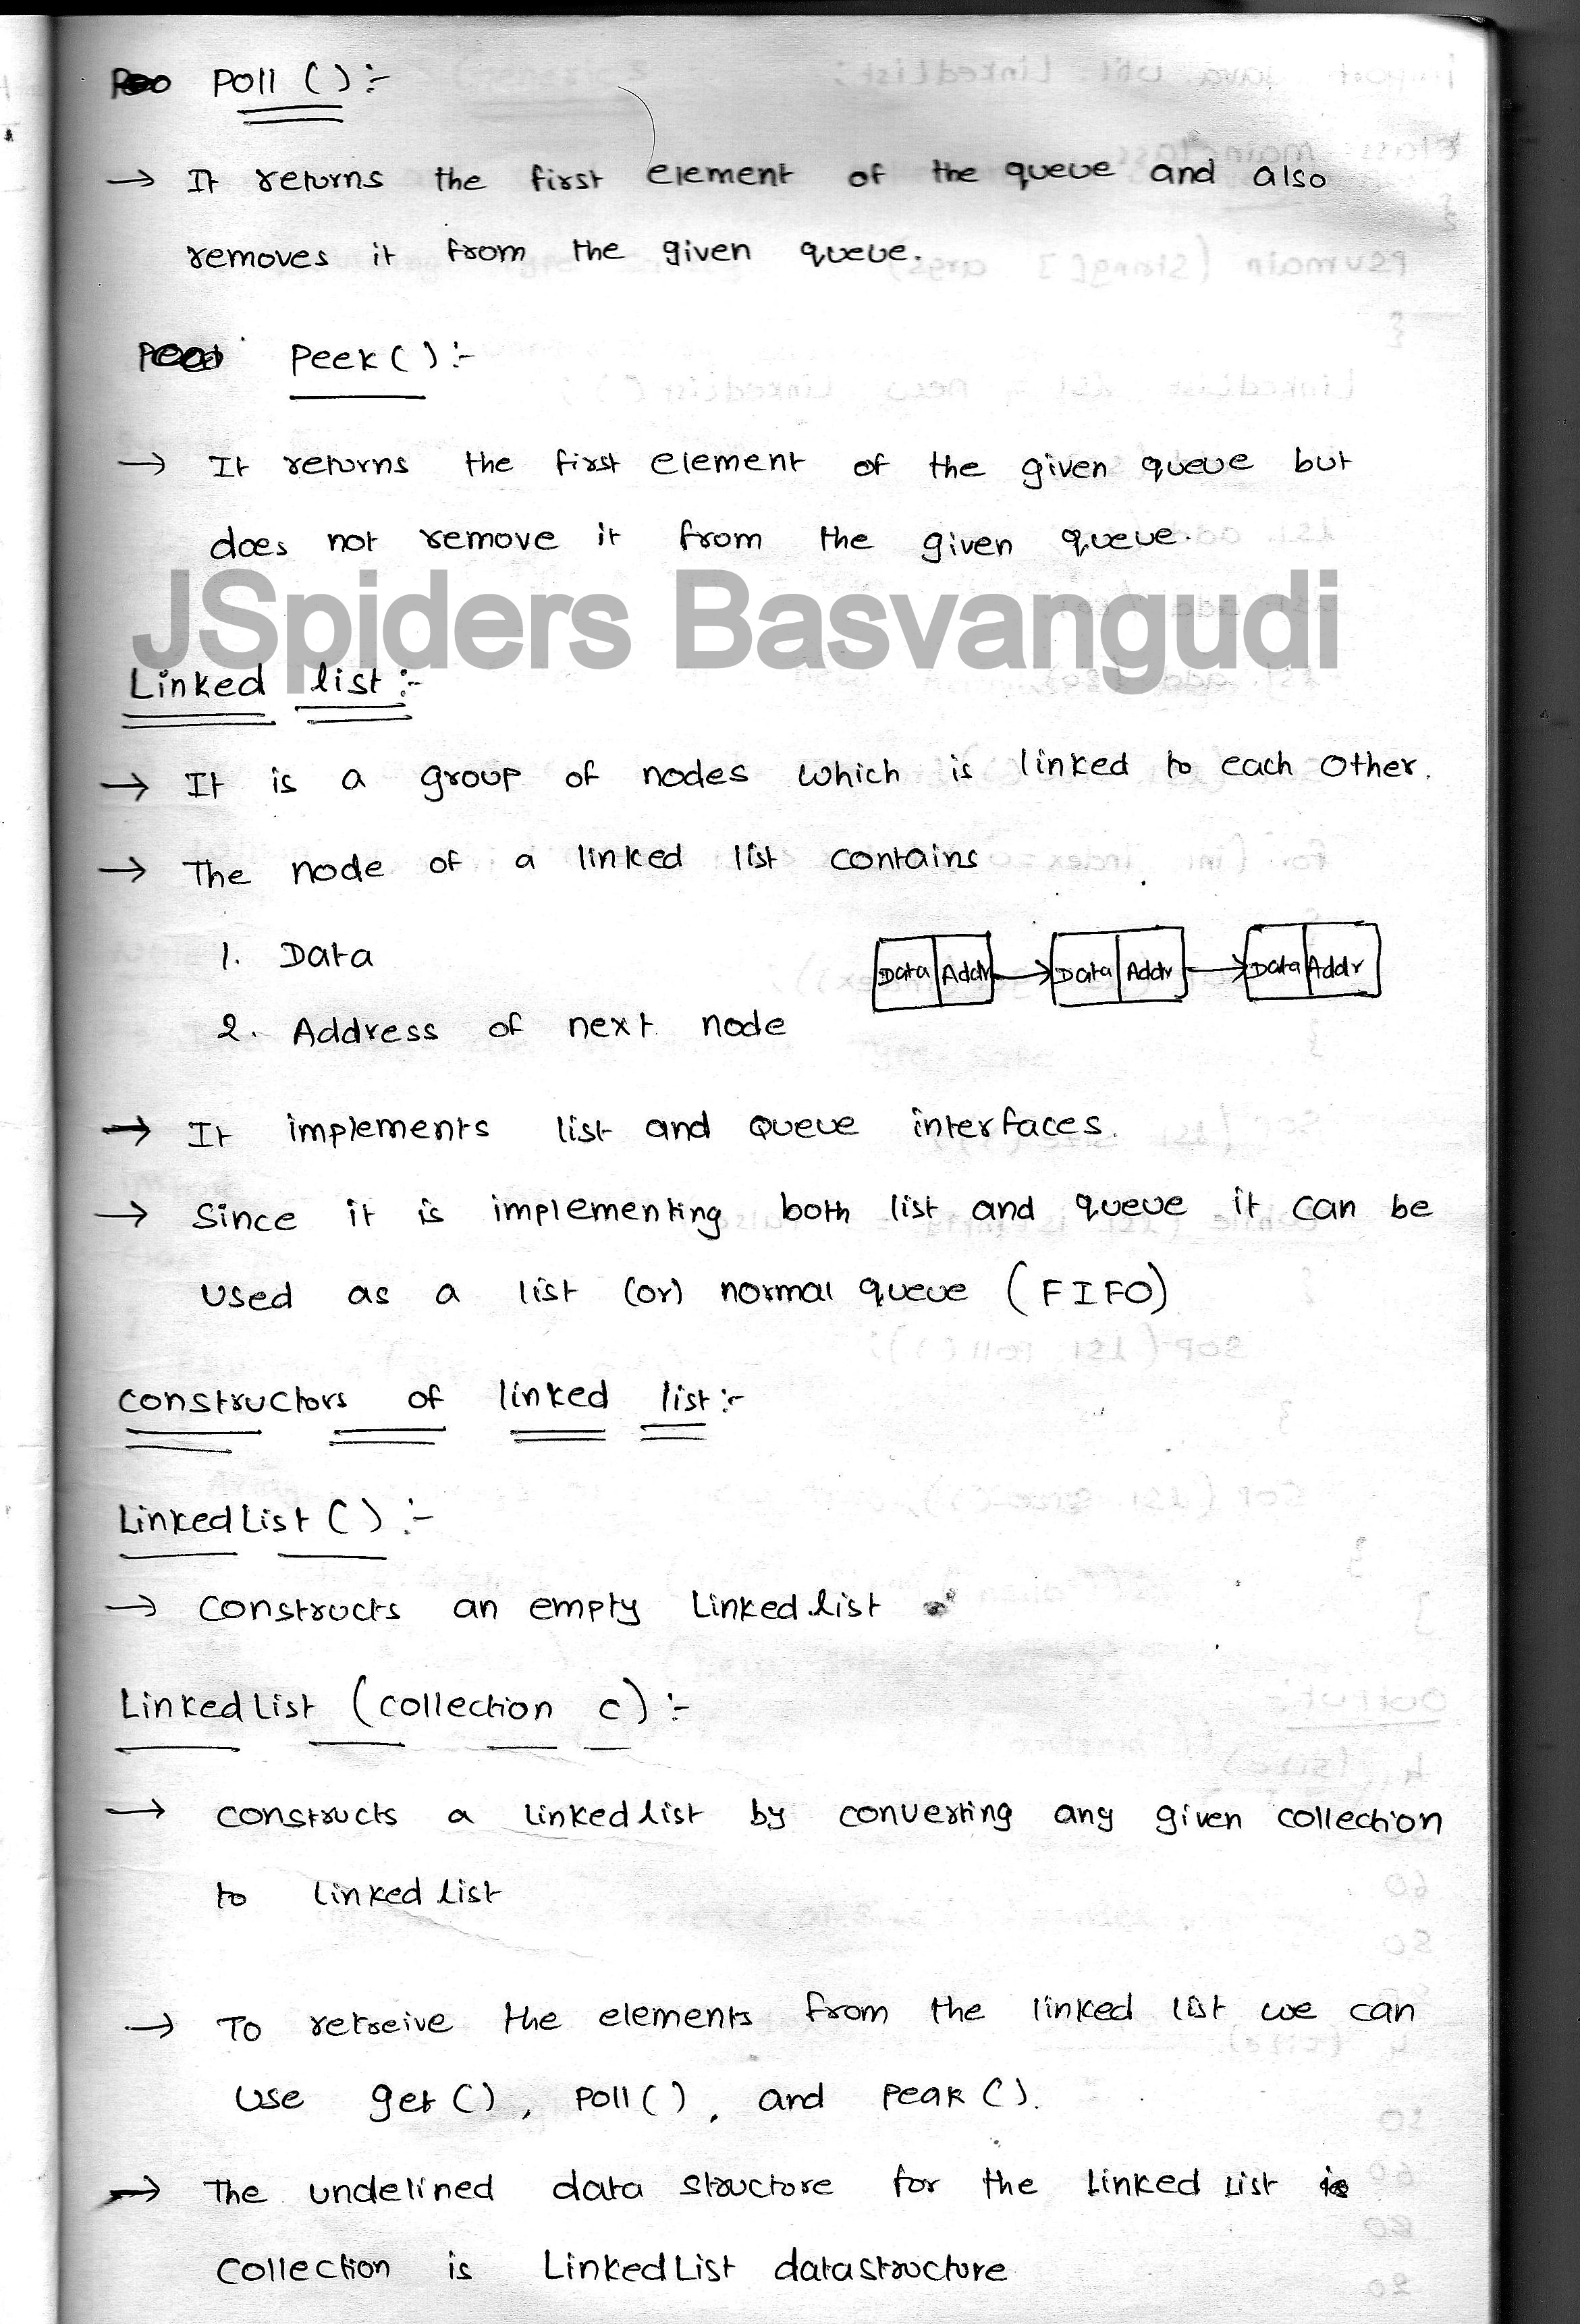 Poll () :-
→ It returns the first element of the queue and also
removes it from the given queue.
Peek () :-
→ It returns the first element of the given queue but
does not remove it from the given queue.
JSpiders Basvangudi
Linked list :-
→ It is a group of nodes which is linked to each other.
→ The node of a linked list contains
1. Data
Data Addr Data Addr Data Addr
2. Address of next node
→ It implements list and Queue interfaces.
→ Since it is implementing both list and queue it can be
used as a list (or) normal queue (FIFO)
constructors of linked list :-
LinkedList () :-
→ constructs an empty Linked list
LinkedList (collection c) :-
→ constructs a linked list by converting any given collection
to linked list
→ To retreive the elements from the linked list we can
use get (), poll (), and peak ().
→ The undelined data structure for the Linked List
collection is LinkedList datastructure